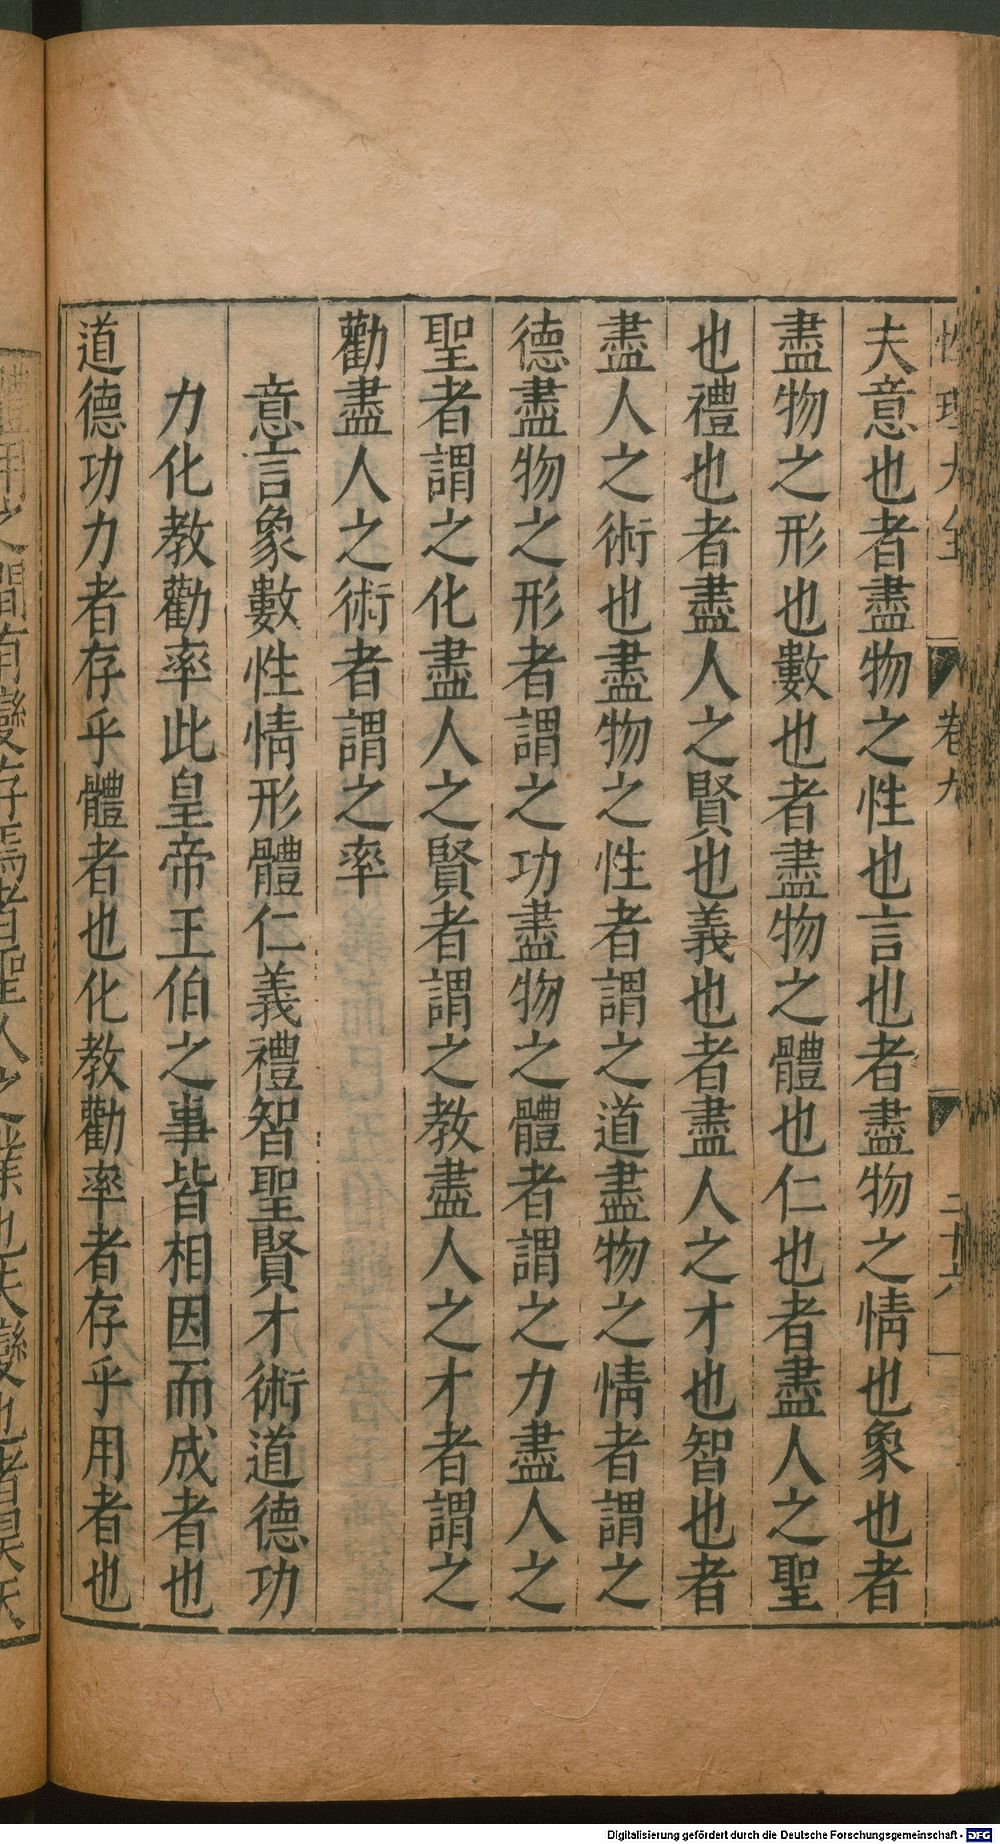 性理大全 卷九 二十六
夫意也者盡物之性也言也者盡物之情也象也者
盡物之形也數也者盡物之體也仁也者盡人之聖
也禮也者盡人之賢也義也者盡人之才也智也者
盡人之術也盡物之性者謂之道盡物之情者謂之
德盡物之形者謂之功盡物之體者謂之力盡人之
聖者謂之化盡人之賢者謂之教盡人之才者謂之
勸盡人之術者謂之率
意言象數性情形體仁義禮智聖賢才術道德功
力化教勸率此皇帝王伯之事皆相因而成者也
道德功力者存乎體者也化教勸率者存乎用者也
體用之間有變存焉者聖人之業也夫變也者昊天
Digitalisierung gefördert durch die Deutsche Forschungsgemeinschaft - DFG